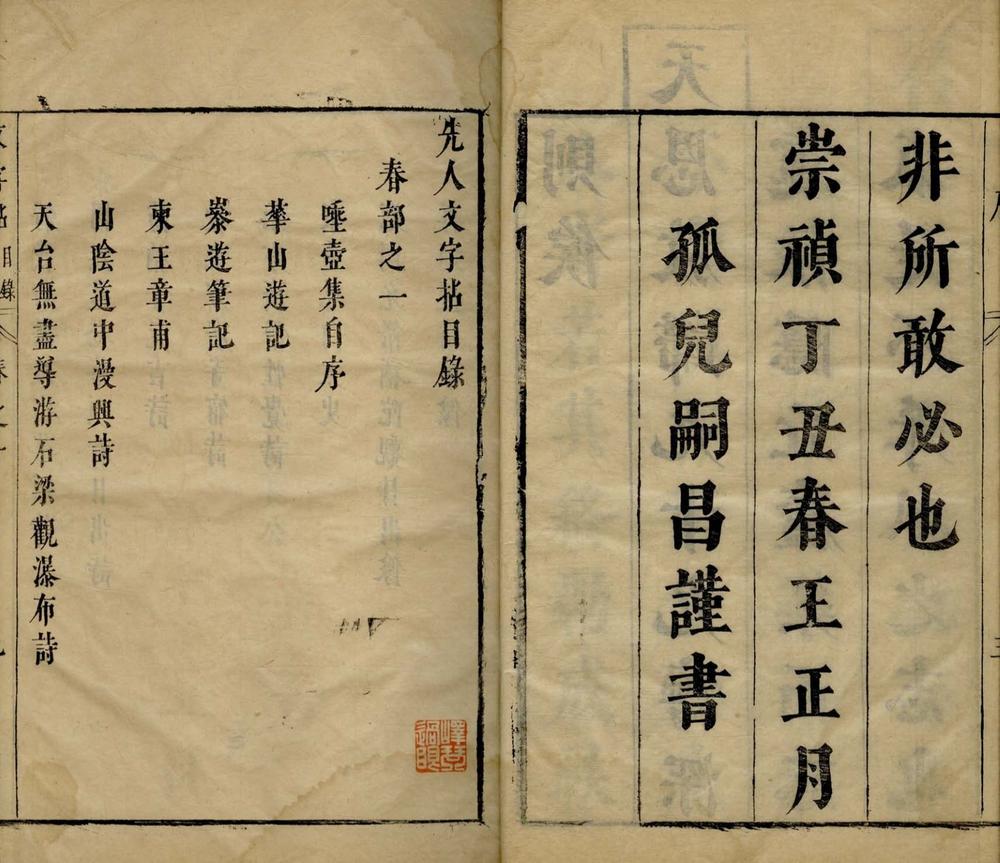 非所敢必也
崇禎丁丑春王正月
孤兒嗣昌謹書
先人文字拈目錄
春部之一
唾壺集自序
華山遊記
泰遊筆記
柬王章甫
山陰道中漫興詩
天台無盡導游石梁觀瀑布詩
文字拈目錄